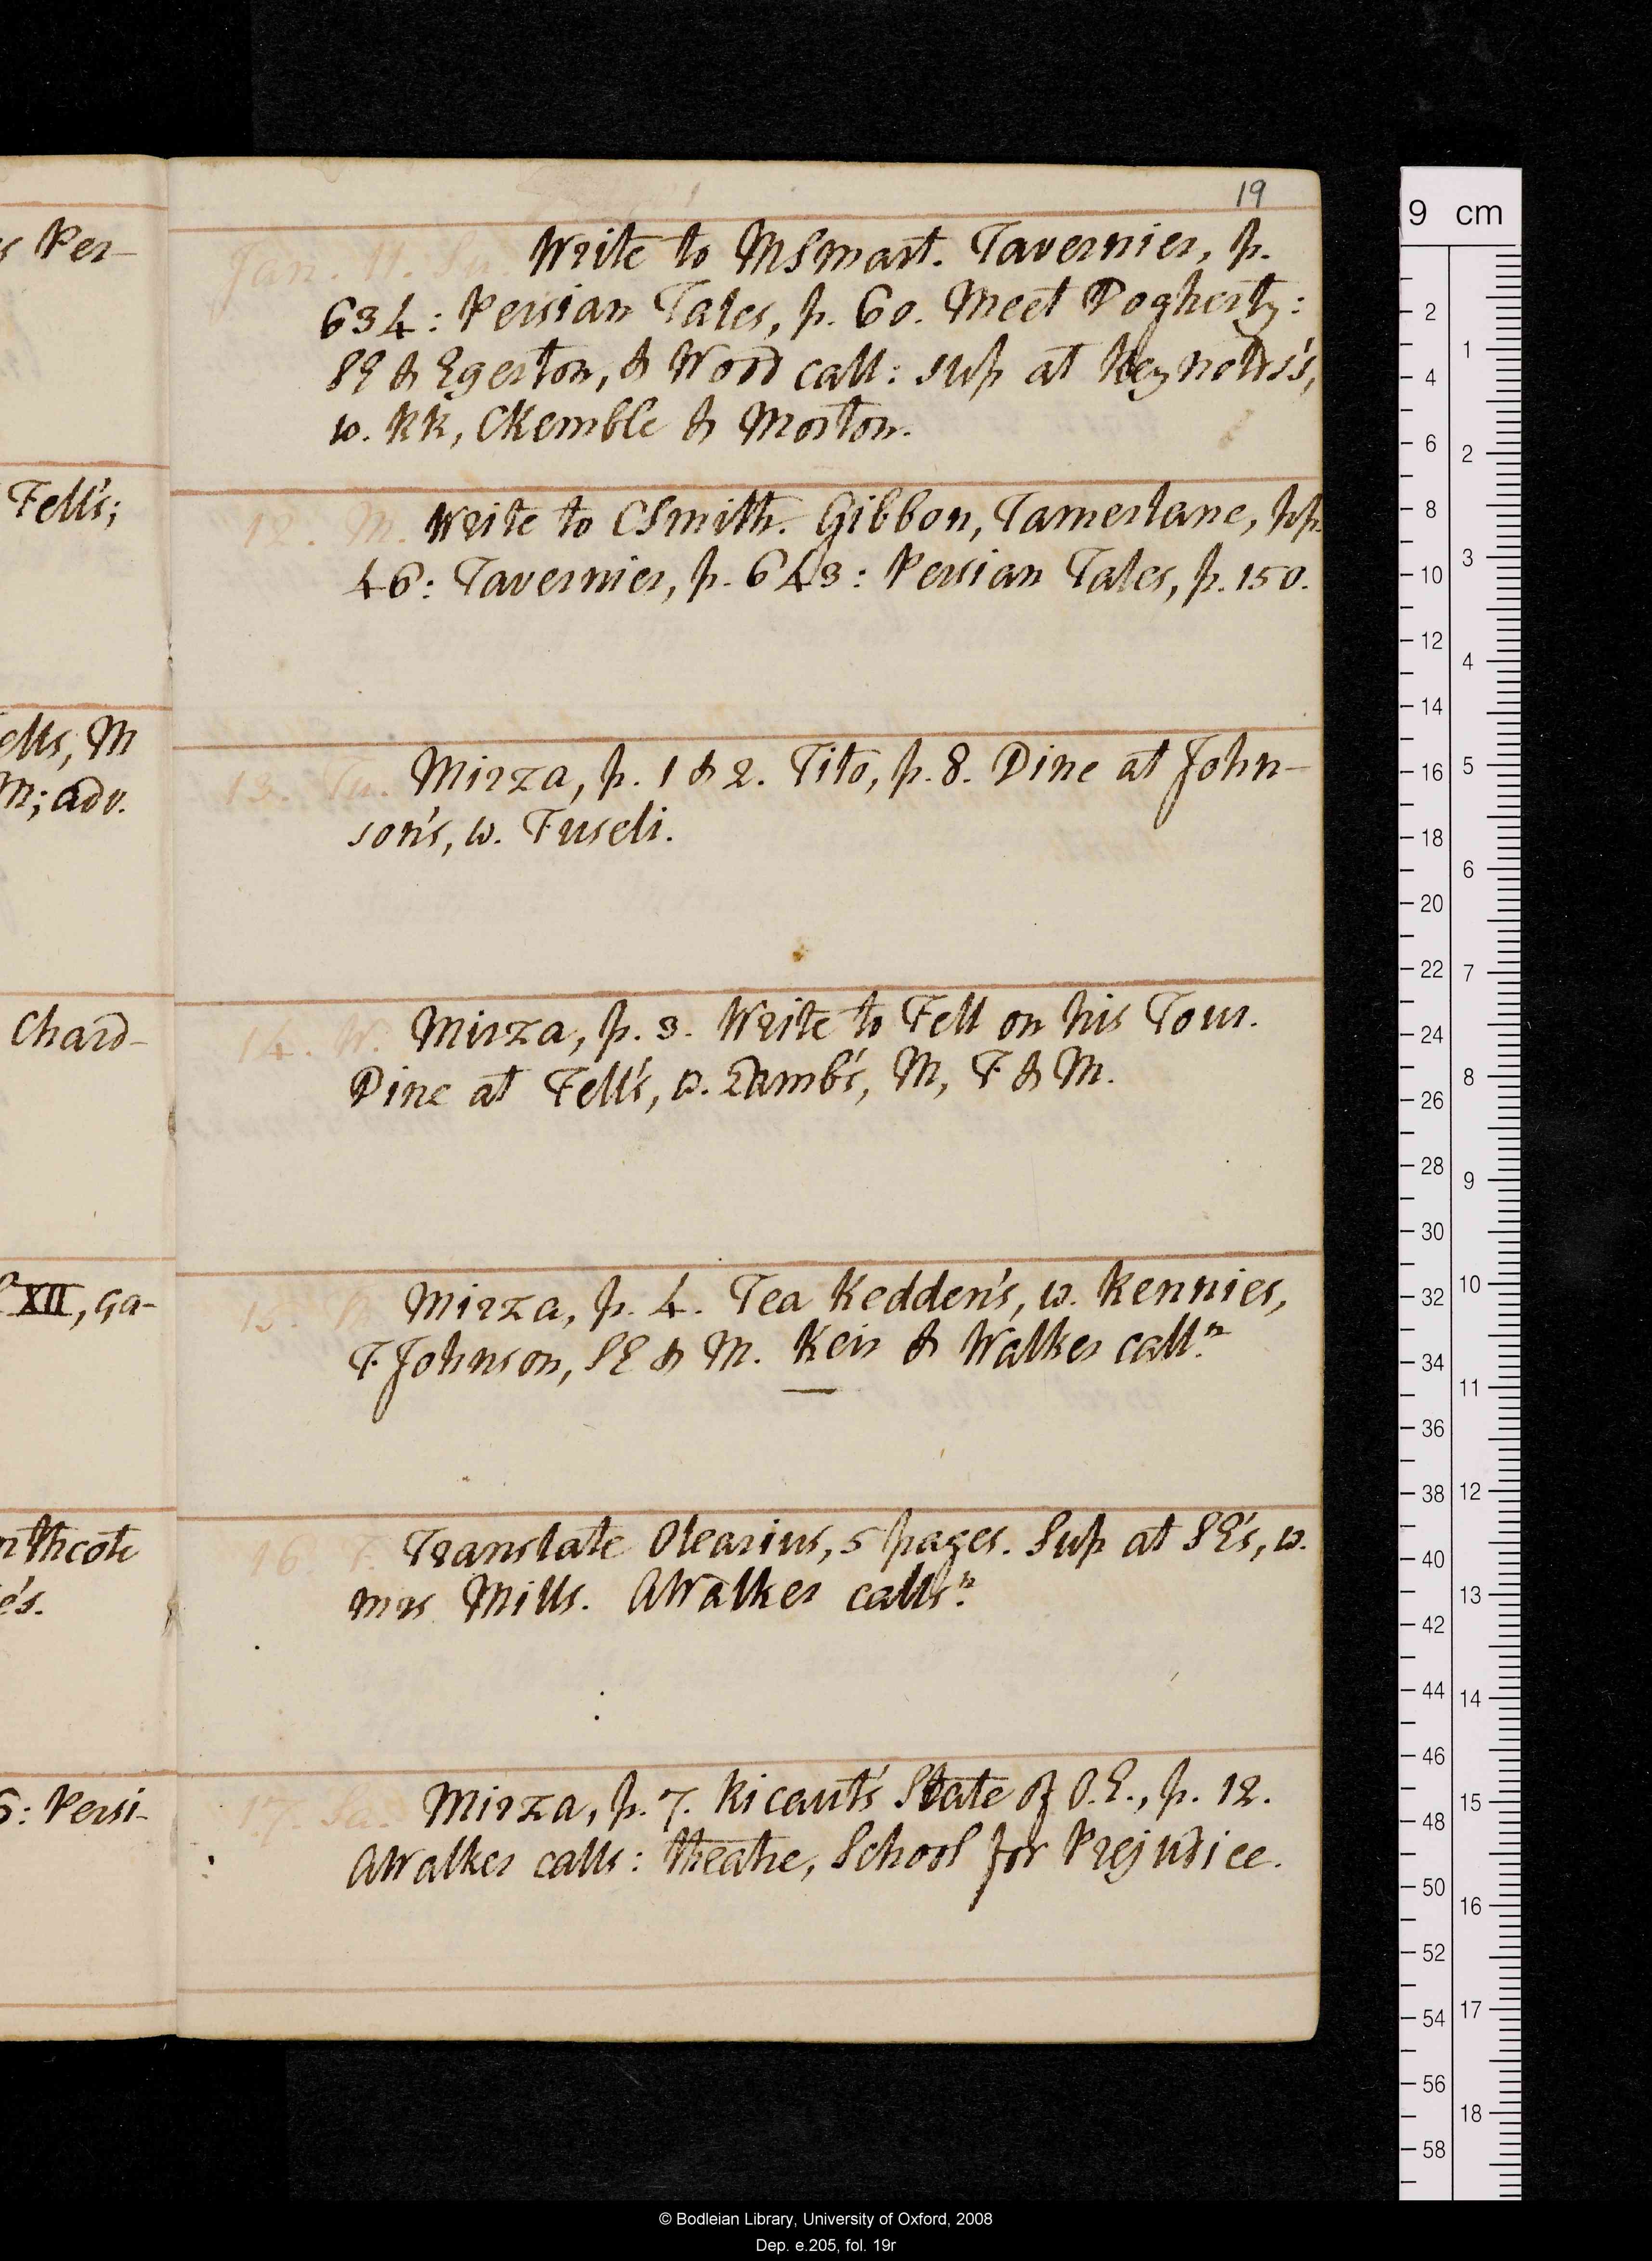 19
s Per-
Fell's;
ells, M
M; adv.
Chard-
XII, Ga-
thcote
e's.
6: Persi-
Jan. 11. Su. Write to MSmart. Tavernier, p.
634: Persian Tales, p. 60. Meet Dogherty:
SE & Egerton, & Wood call: sup at Reynolds's,
w. KK, CKemble & Morton.
12. M. Write to CSmith. Gibbon, Tamerlane, pp.
46: Tavernier, p. 643: Persian Tales, p. 150.
13. Tu. Mirza, p. 1 & 2. Tito, p. 8. Dine at John-
son's, w. Fuseli.
14. W. Mirza, p. 3. Write to Fell on his Tour.
Dine at Fell's, w. Lamb's, M, F & M.
15. Th. Mirza, p. 4. Tea Kedden's, w. Kennies,
FJohnson, SE & M. Keir & Walker call n
16. F. Translate Olearius, 5 pages. Sup at SE's, w.
mrs Mills. AWalker calls n
17. Sa. Mirza, p. 7. Ricaut's State of O.E., p. 12.
AWalker calls: theatre, School for Prejudice.
9 cm
2
4
6
8
10
12
14
16
18
20
22
24
26
28
30
32
34
36
38
40
42
44
46
48
50
52
54
56
58
1
2
3
4
5
6
7
8
9
10
11
12
13
14
15
16
17
18
© Bodleian Library, University of Oxford, 2008
Dep. e.205, fol. 19r